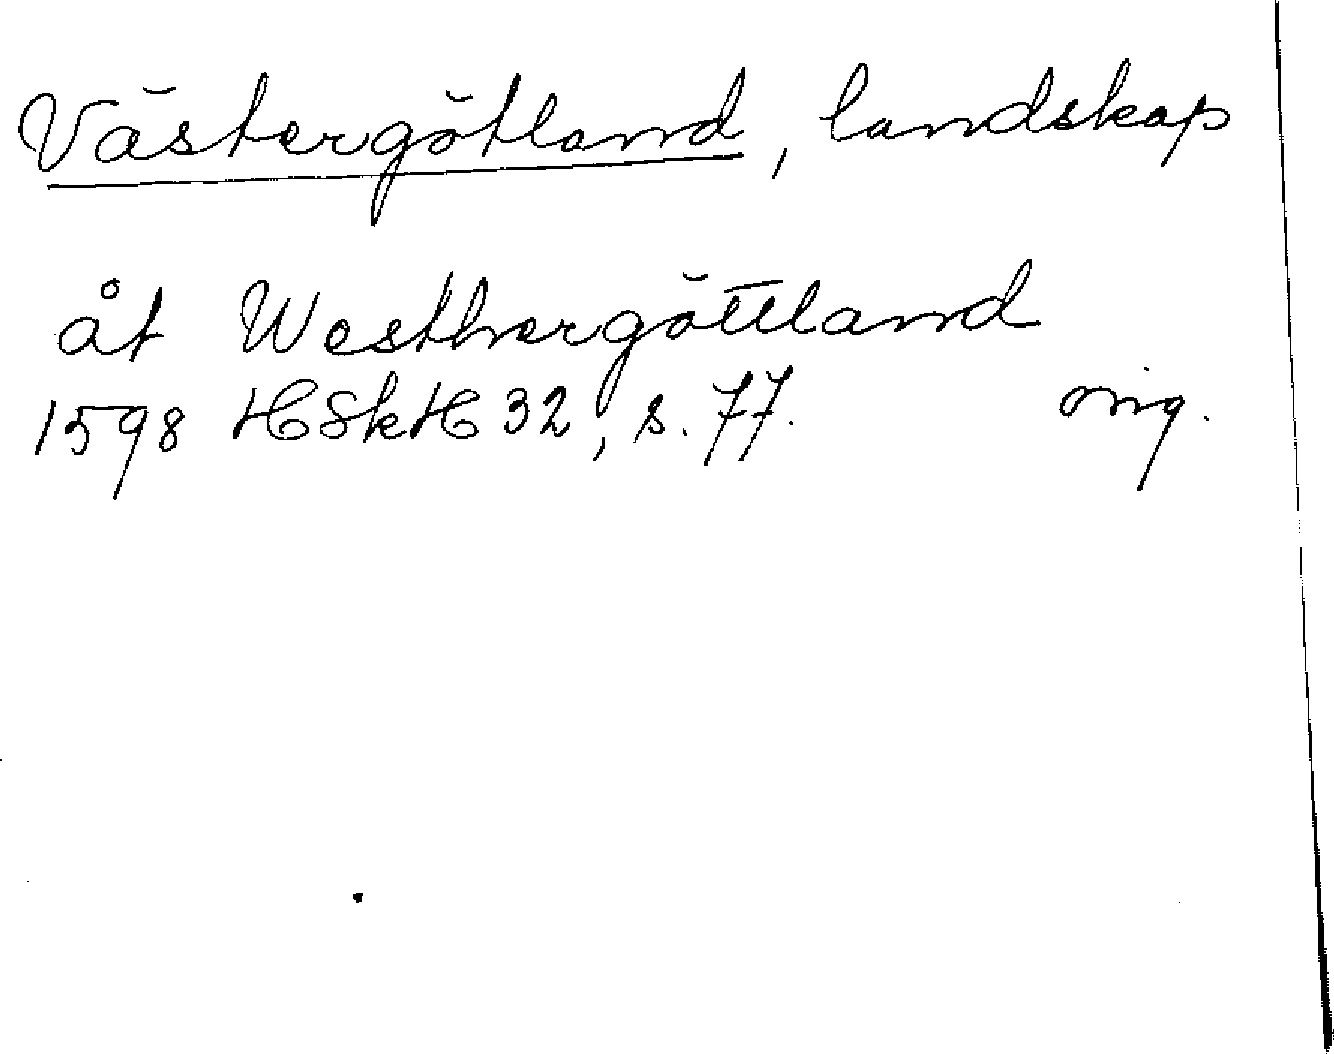 Västergötland, landskap
åt Westhergöttland
1598 HSkH 32, s. 77. orig.